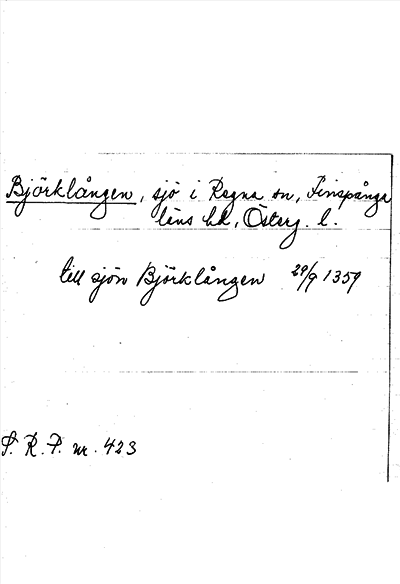 Björklången, sjö i Regna sn, Finspånga
läns hd, Österg. l.
till sjön Björklången 29/9 1359
S. R. P. nr. 423